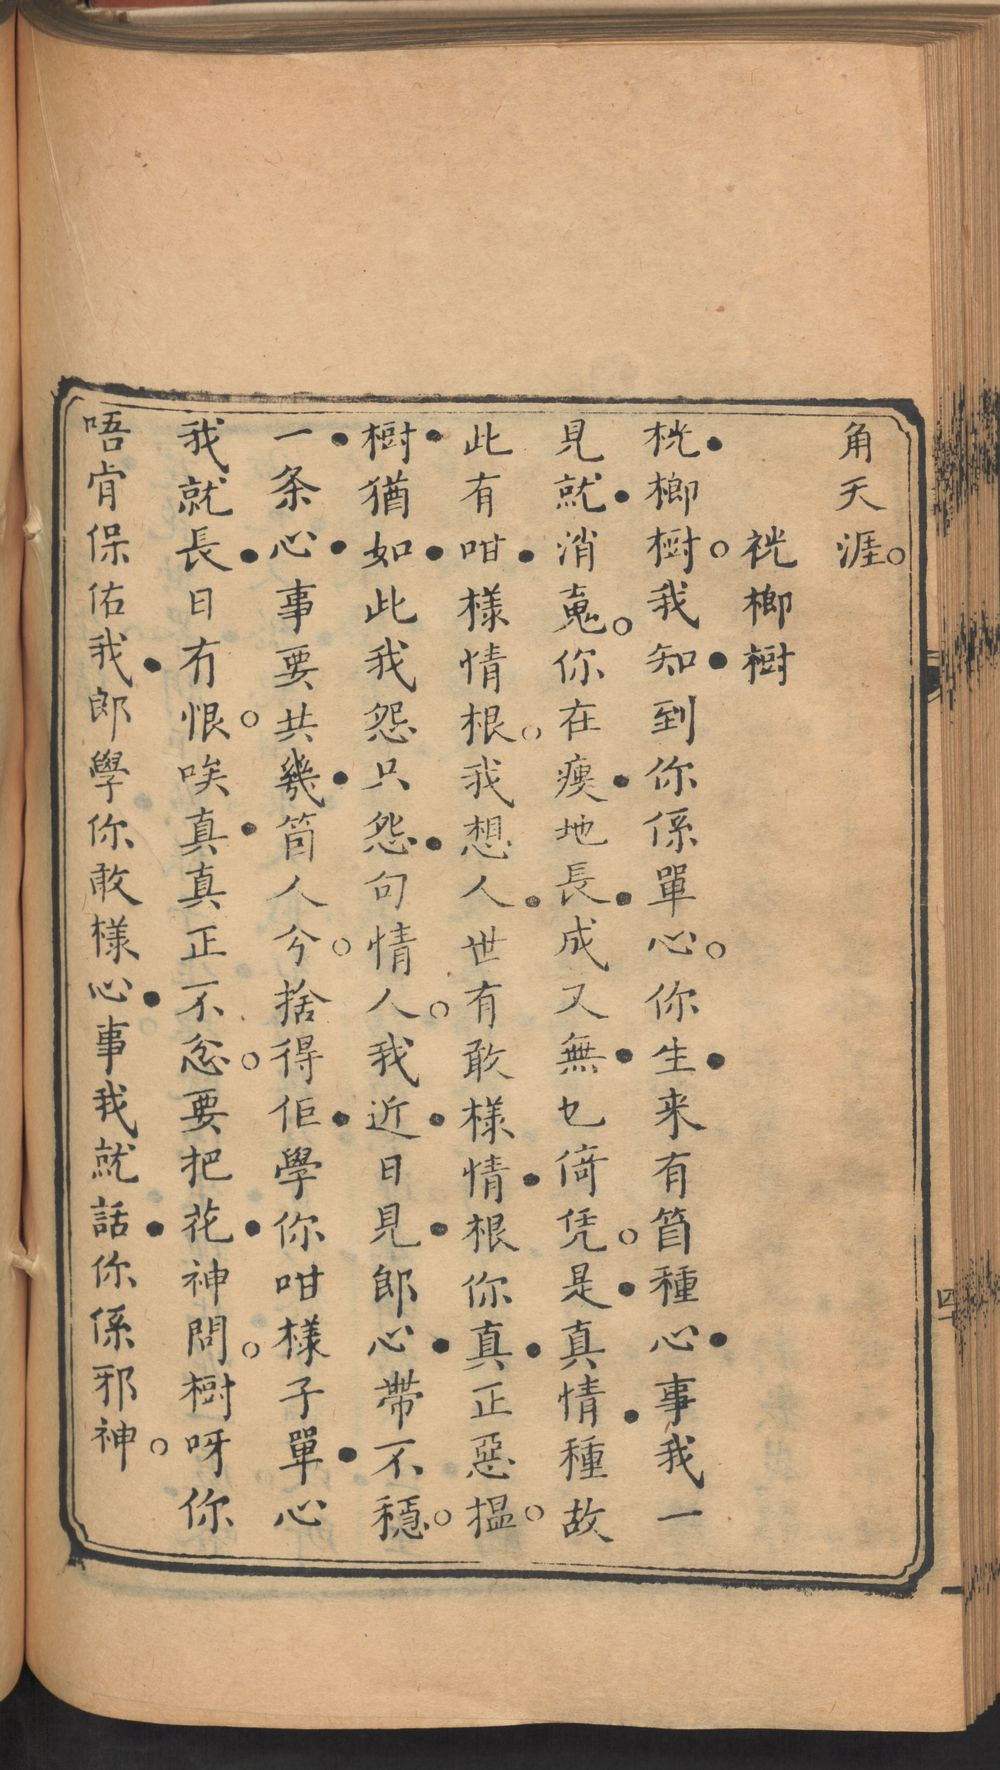 角天涯。
桄榔樹
桄榔樹。我知到你係單心。你生來有箇種心事我一
見就消䰟。你在瘦地長成又無乜倚凭。是真情種故
此有咁樣情根。我想人世有敢樣情根你真正惡揾。
樹猶如此我怨只怨句情人。我近日見郎心帶不穩。
一条心事要共幾箇人分。捨得佢學你咁樣子單心
我就長日冇恨。唉真真正不忿。要把花神問。樹呀你
唔肯保佑我郎學你敢樣心事我就話你係邪神。
四